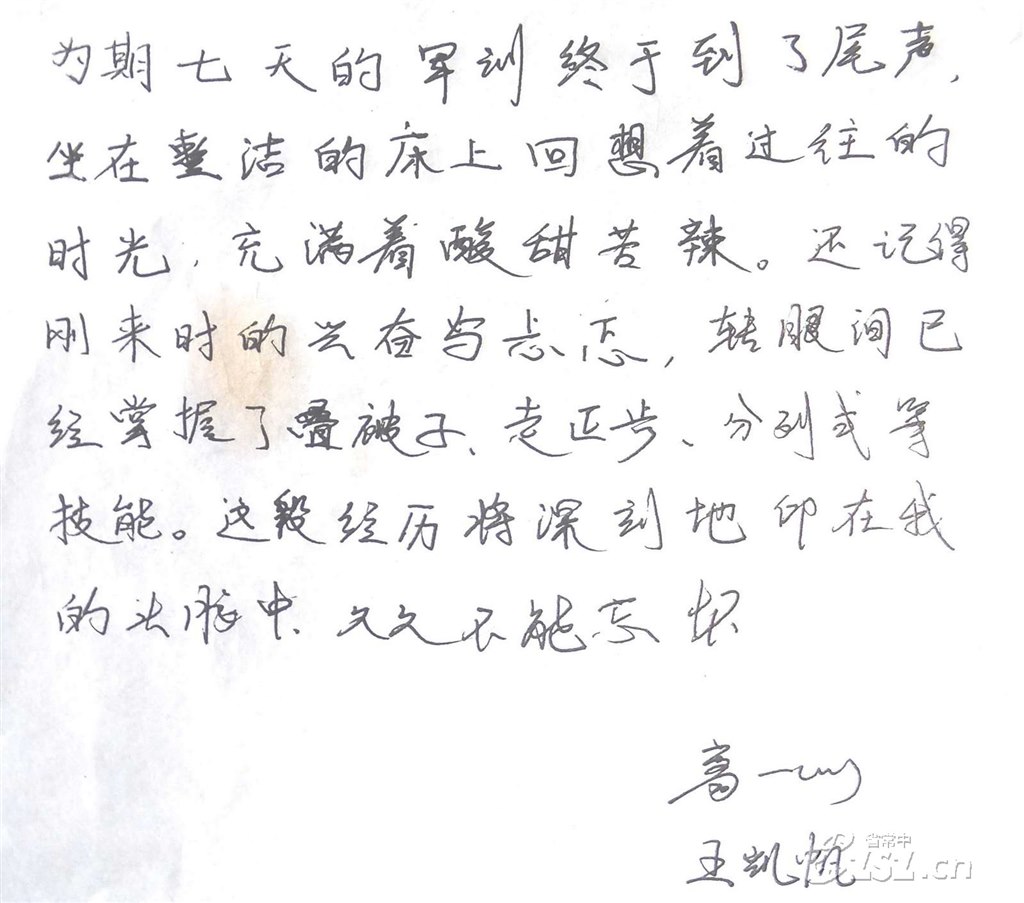 为期七天的军训终于到了尾声,
坐在整洁的床上回想着过往的
时光,充满着酸甜苦辣。还记得
刚来时的兴奋与忐忑,转眼间已
经掌握了叠被子、走正步、分列式等
技能。这段经历将深刻地印在我
的头脑中、久久不能忘怀
高一
王凯帆
省常中
.cn